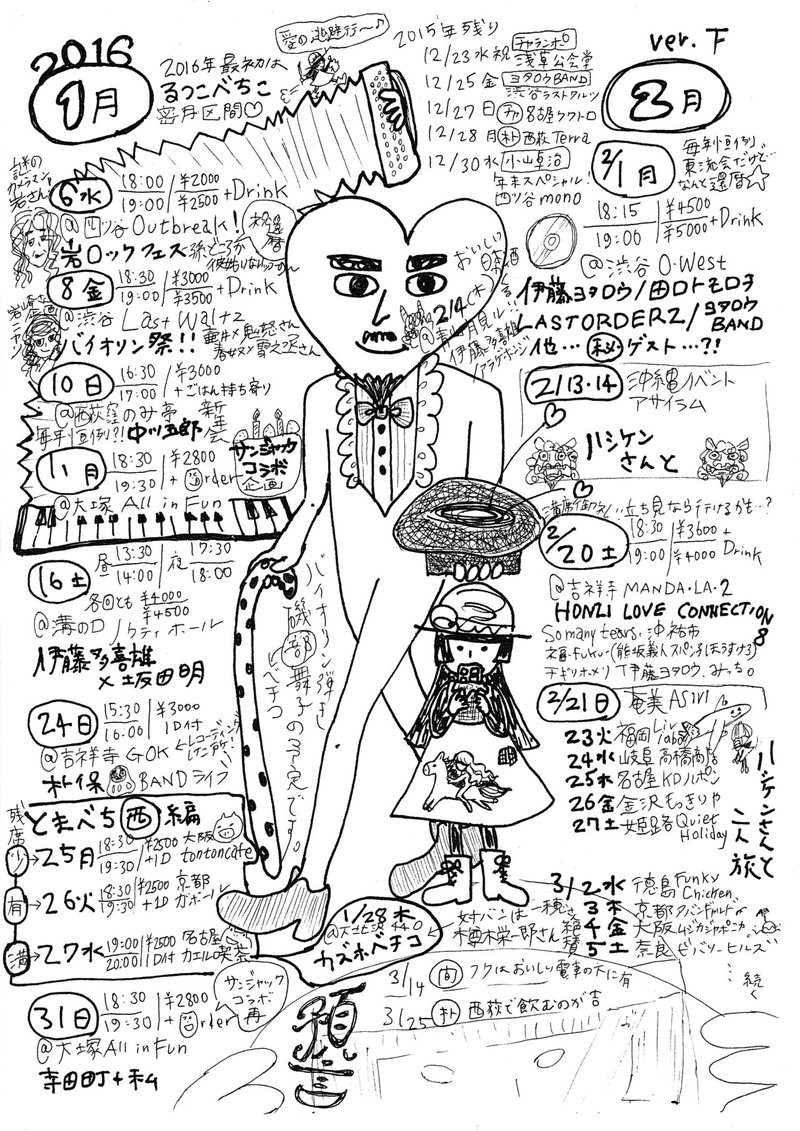 2016
1月
2016年最初は
るつこべちこ
蜜月区間♡
愛の逃避行〜♪
2015年残り
12/23水祝 チャランポ 浅草公会堂
12/25金 ヨタロウBAND
渋谷ラストワルツ
12/27日 チャ 名古屋クワトロ
12/28月 朴 西荻 Terra
12/30水 小山卓治
年末スペシャル!
四ツ谷mono
ver. 下
6水 18:00/19:00 ¥2000/¥2500 +Drink
@四ツ谷 Outbreak!
岩ロックフェス
祝還暦
8金 18:30/19:00 ¥3000/¥3500 +Drink
@渋谷 Last Waltz
バイオリン祭!!
10日 16:30/17:00 ¥3000 +ごはん持ち寄り
@西荻窪 のみ亭 新年会
毎年恒例?! 中川五郎
11月 18:30/19:30 ¥2800 +order
サンジャック
コラボ
企画
@大塚 All in Fun
16土 昼 13:30/14:00 夜 17:30/18:00
各回とも ¥4000/¥4500
@溝の口 ノクティホール
伊藤多喜雄
×坂田明
24日 15:30/16:00 ¥3000 1D付
@吉祥寺 GOK
←レコーディング
朴保 BANDライブ
とまべち 西 編
残席
少→25月 18:30/19:30 ¥2500 +1D 大阪 tontoncafe
有→26火 18:30/19:30 ¥2500 +1D 京都 ガボール
満→27水 19:00/20:00 ¥2500 1D付 名古屋 カエル喫茶
31日 18:30/19:30 ¥2800 +order
サンジャック
コラボ
再
@大塚 All in Fun
寺田町+私
バイオリン弾き
磯部舞子の予定です。
べチコ
おいしい日本酒
2/4(木)
伊藤多喜雄
1/28木
カズホベチコ
預言
2月
2/1月
毎年恒例、
東流会だけど
なんと還暦☆
18:15/19:00 ¥4500/¥5000 +Drink
@渋谷 O-West
伊藤ヨタロウ/田口トモロヲ
LASTORDERZ/ヨタロウBAND
他… 秘 ゲスト…?!
2/13・14 沖縄イベント
アサイラム
ハシケン
さんと
満席御礼!! 立ち見なら行けるかも…?
2/20土 18:30/19:00 ¥3600/¥4000 + Drink
@吉祥寺 MANDA・LA・2
HONZI LOVE CONNECTION 8
So many tears, 沖祐市
チギリホメリ 伊藤ヨタロウ、みっち。
2/21日 奄美ASIVI
23火 福岡 Live labo
24水 岐阜 高橋商店
25木 名古屋 KDハポン
26金 金沢 もっきりや
27土 姫路 Quiet Holiday
ハシケンさんと
二人旅
3/2水 徳島 Funky Chicken
3木 京都
4金 大阪 ムジカジャポニカ
5土 奈良 ビバリーヒルズ
続く
3/14 旬 フクはおいしい電車の下に有
3/25 朴 西荻で飲むのが吉